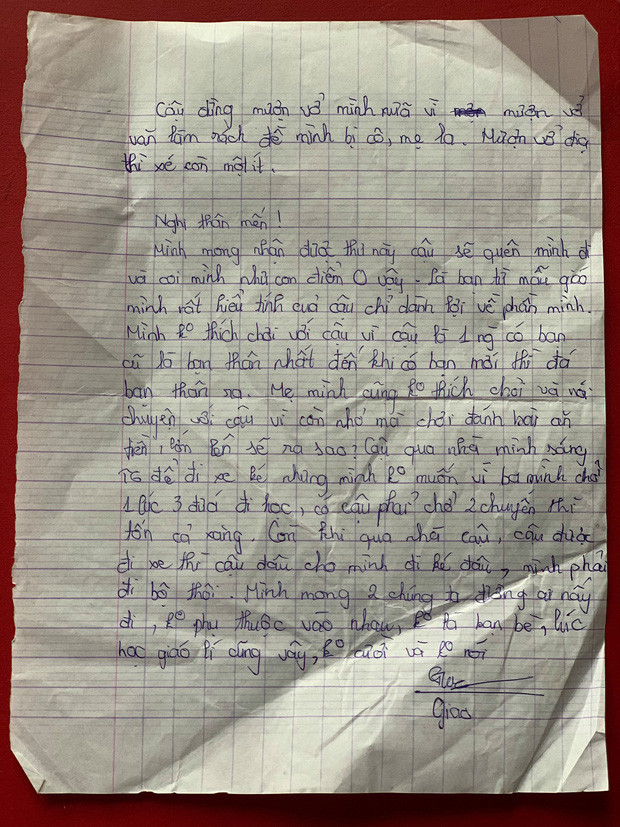 Cậu đừng mượn vở mình nữa vì mượn vở
văn làm rách để mình bị cô, mẹ la. Mượn vở địa
thì xé còn một ít.
Nghi thân mến!
Mình mong nhận được thư này cậu sẽ quên mình đi
và coi mình như con điểm 0 vậy. Là bạn từ mẫu giáo
mình rất hiểu tính cuả cậu chỉ dành lợi về phần mình.
Mình ko thích chơi với cậu vì cậu là 1 ng có bạn
cũ là bạn thân nhất đến khi có bạn mới thì đá
bạn thân ra. Mẹ mình cũng ko thích chơi và nói
chuyện với cậu vì còn nhỏ mà chơi đánh bài ăn
tiền, lớn lên sẽ ra sao? Cậu qua nhà mình sáng
T6 để đi xe ké nhưng mình ko muốn vì ba mình chở
1 lúc 3 đứa đi học, có cậu phải chở 2 chuyến thì
tốn cả xăng. Còn khi qua nhà cậu, cậu được
đi xe thì cậu đâu cho mình đi ké đâu, mình phải
đi bộ thôi. Mình mong 2 chúng ta đường ai nấy
đi, ko phụ thuộc vào nhau, ko là bạn bè, lúc
học giáo lí cũng vậy, ko cười và ko nói
Giao